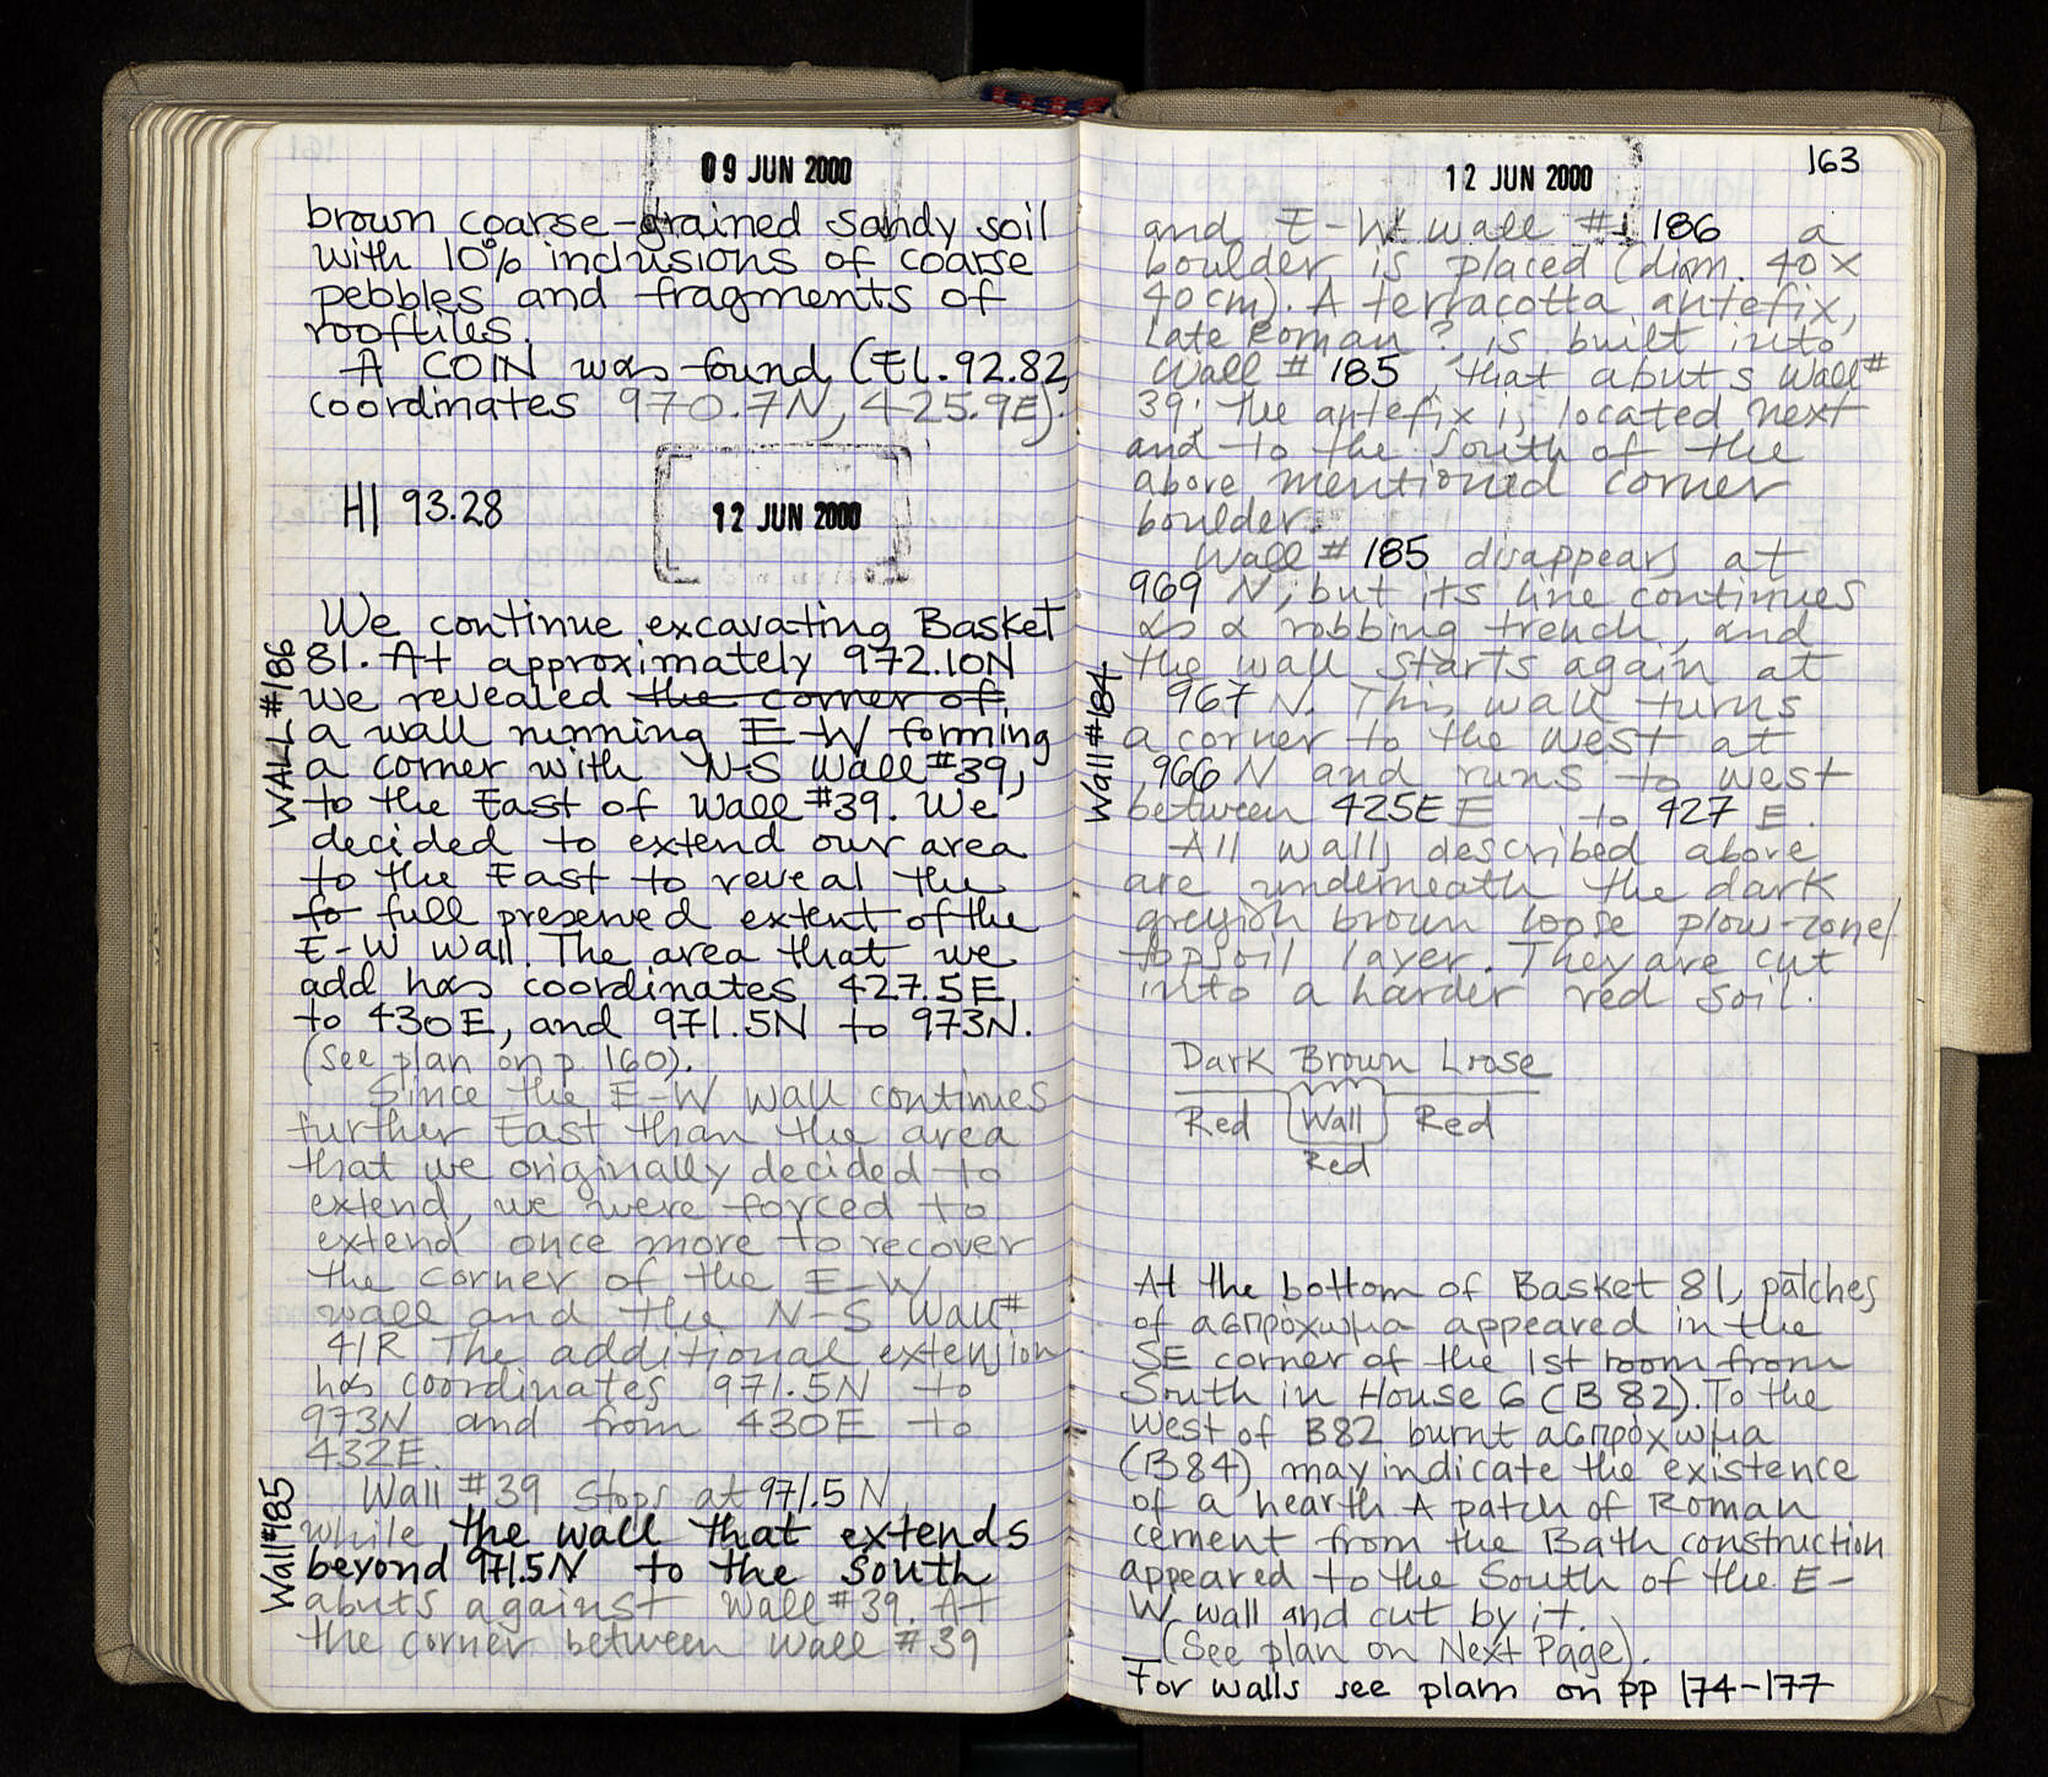 09 JUN 2000
brown coarse-grained sandy soil
with 10% inclusions of coarse
pebbles and fragments of
rooftiles.
A COIN was found (El. 92.82,
coordinates 970.7N, 425.9E).
HI 93.28
12 JUN 2000
WALL #186
We continue excavating Basket
81. At approximately 972.10N
we revealed the corner of
a wall running E-W forming
a corner with N-S Wall #39,
to the East of Wall #39. We
decided to extend our area
to the East to reveal the
fo full preserved extent of the
E-W wall. The area that we
add has coordinates 427.5E
to 430E, and 971.5N to 973N.
(See plan on p. 160).
Since the E-W wall continues
further East than the area
that we originally decided to
extend, we were forced to
extend once more to recover
the corner of the E-W
wall and the N-S Wall #
41R The additional extension
has coordinates 971.5N to
973N and from 430E to
432E.
Wall #185
Wall #39 stops at 971.5 N,
while the wall that extends
beyond 971.5N to the south
abuts against Wall #39. At
the corner between Wall #39
163
12 JUN 2000
and E-W wall # 186 a
boulder is placed (dim. 40 x
40cm). A terracotta antefix,
Late Roman? is built into
Wall # 185, that abuts Wall #
39; the antefix is located next
and to the South of the
above mentioned corner
boulder.
Wall # 185 disappears at
969 N, but its line continues
as a robbing trench, and
the wall starts again at
Wall #184
967 N. This wall turns
a corner to the west at
966 N and runs to west
between 425E E to 427 E.
All walls described above
are underneath the dark
greyish brown loose plow-zone/
topsoil layer. They are cut
into a harder red soil.
Dark Brown Loose
Red Wall Red
Red
At the bottom of Basket 81, patches
of ασπρόχωμα appeared in the
SE corner of the 1st room from
South in House 6 (B 82). To the
West of B82 burnt ασπρόχωμα
(B84) may indicate the existence
of a hearth. A patch of Roman
cement from the Bath construction
appeared to the South of the E-
W wall and cut by it.
(See plan on Next Page).
For walls see plans on pp 174-177